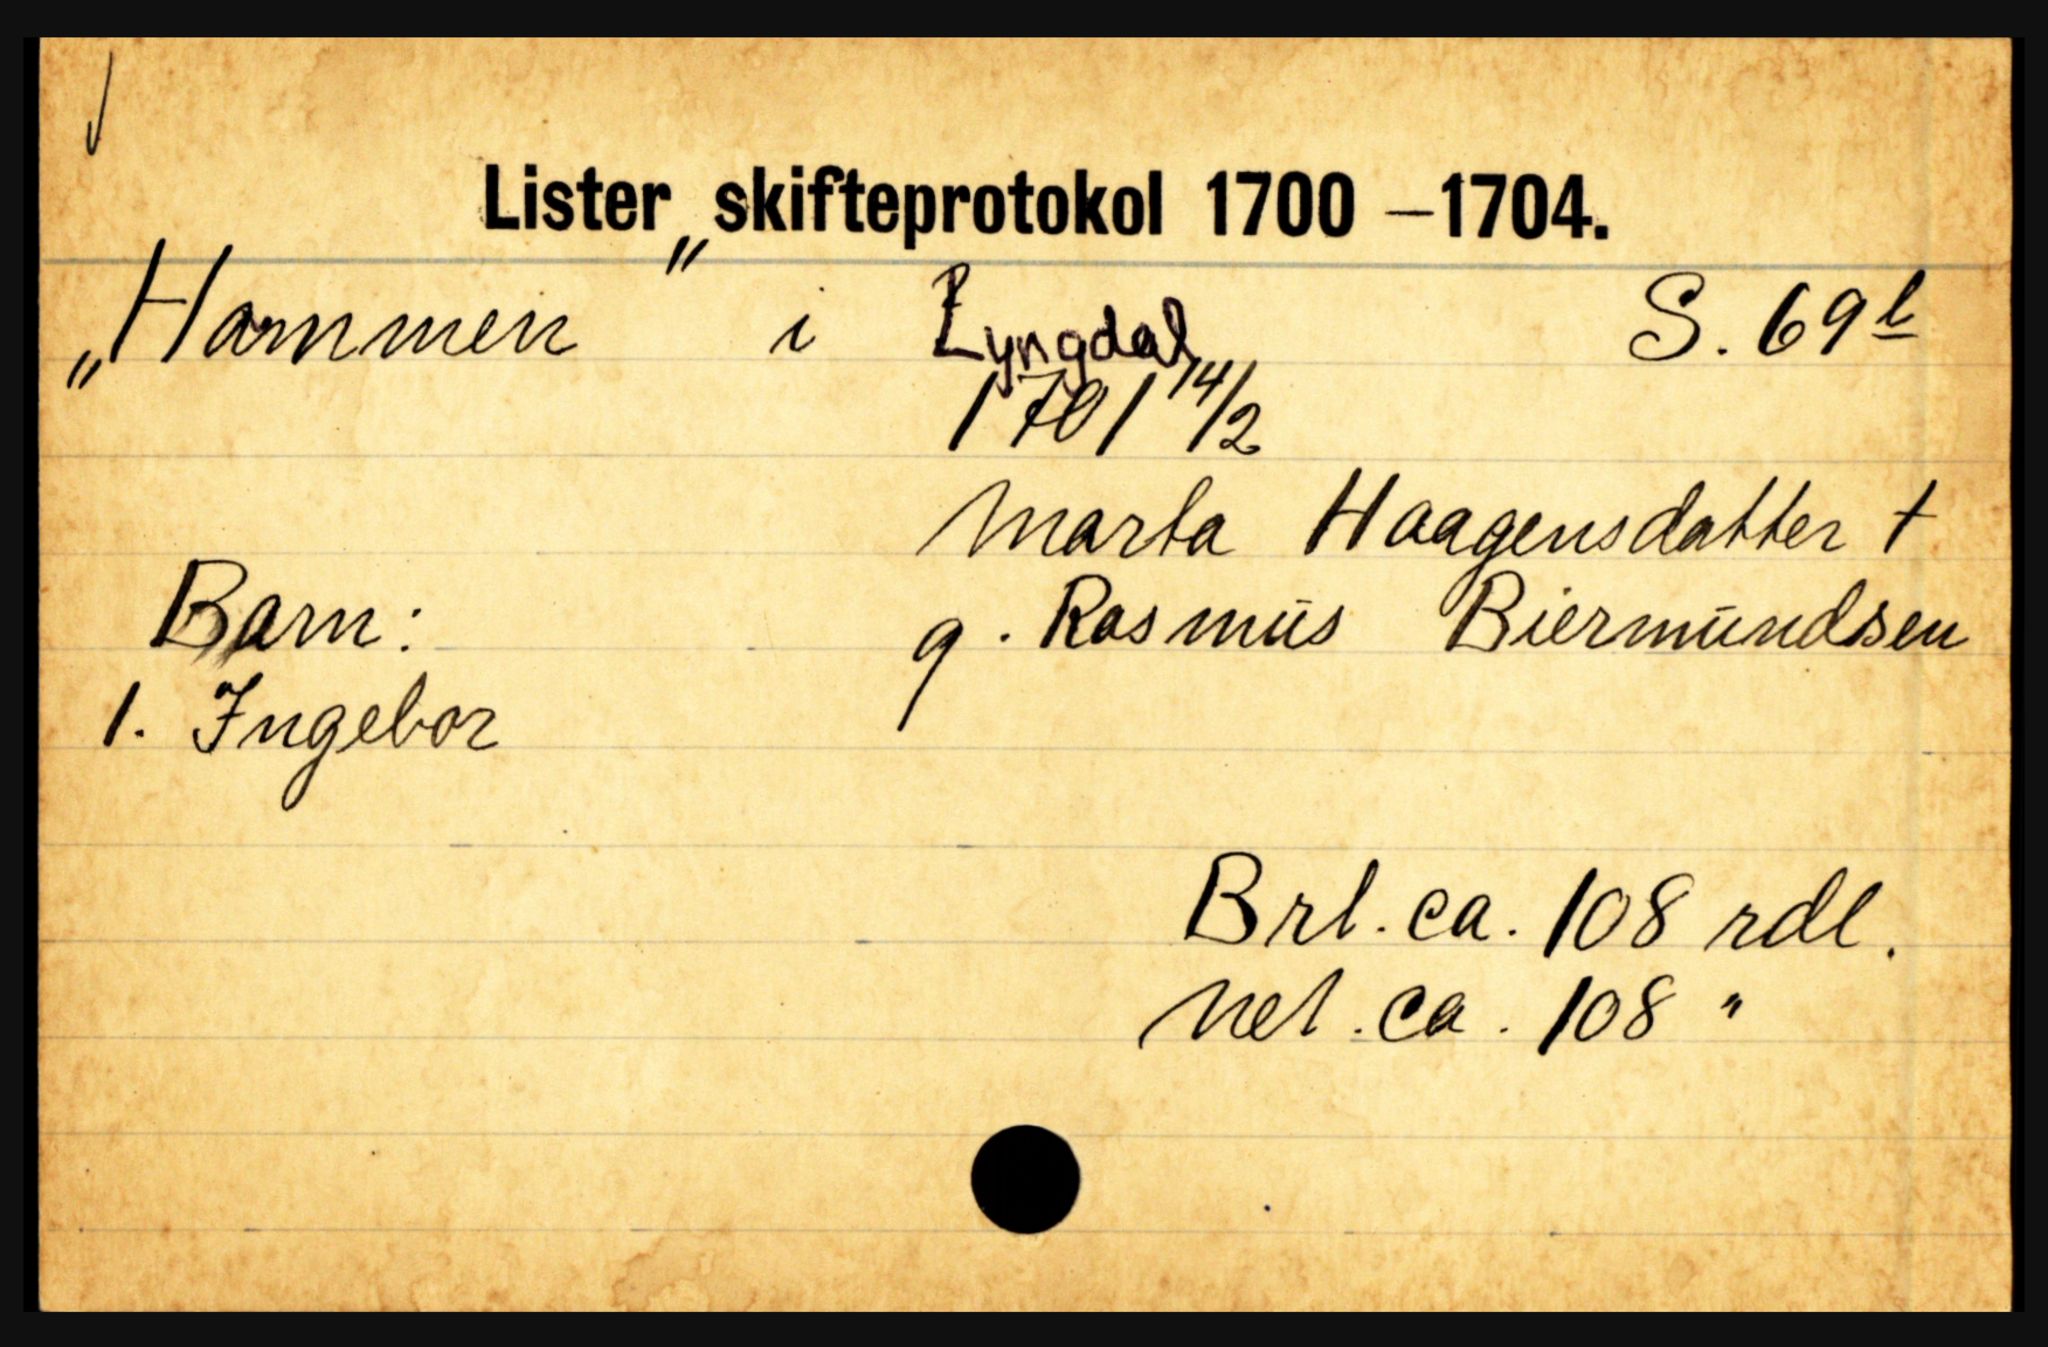 Lister skifteprotokol 1700 – 1704.
„Hammen" i Lyngdal S. 69 b
1701 14/2
Marta Haagensdatter +
Barn: g. Rasmus Biermundsen
1. Ingebor
Brt. ca. 108 rdl.
Net. ca. 108 "